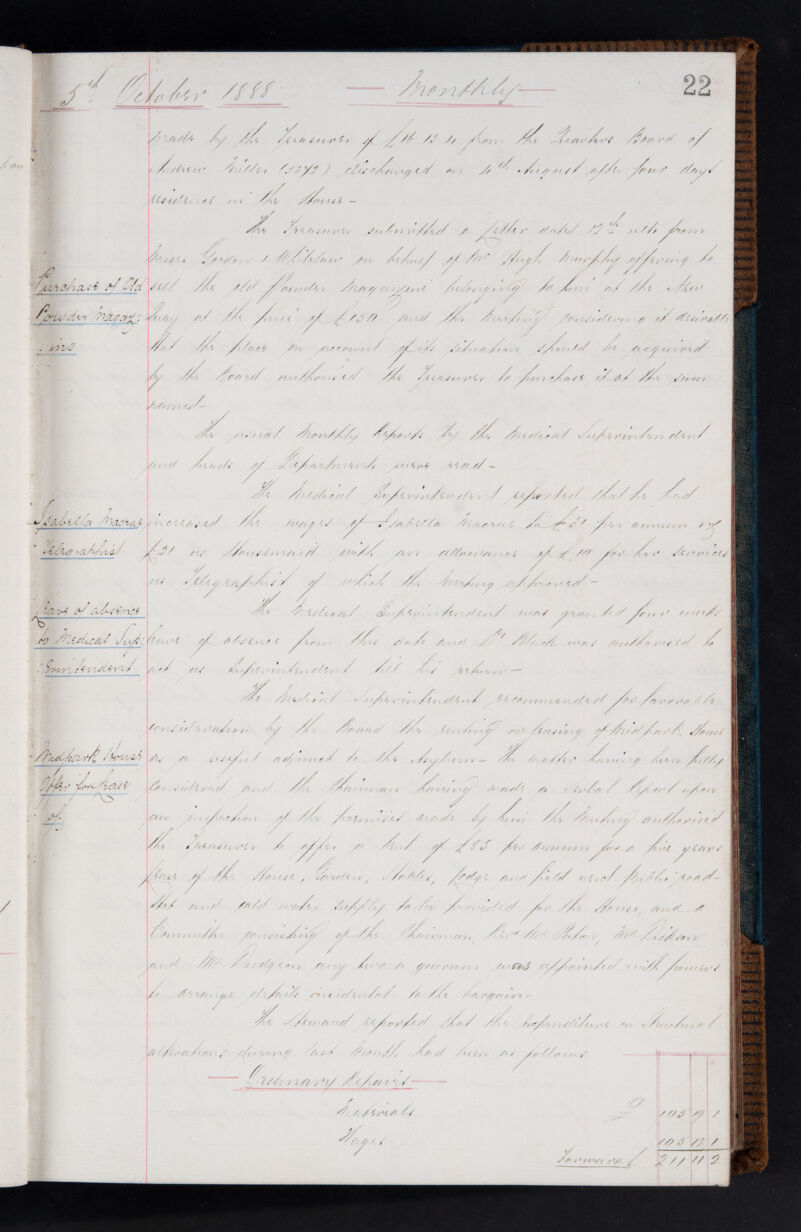 5th October 1888 — Monthly — 22
made by the Treasurer of £16 13 4 from the Quarters Board of
Andrew Miller discharged on 4th August after four days
residence in the House –
The Treasurer submitted a letter dated 12th ulto from
Messrs Gordon & Whitelaw on behalf of Mr Hugh Murphy offering to
Purchase of Old
sell the old Powder Magazine belonging to him at the New
Powder Magaz:
Quay at the price of £120 and the Meeting considering it desirable
:ine
that the place on account of its situation should be acquired
by the Board authorised the Treasurer to purchase it at the sum
named –
The usual Monthly Reports by the Medical Superintendent
and heads of Departments were read –
The Medical Superintendent reported that he had
Isabella Macrae
increased the wages of Isabella Macrae to £31 per annum viz
Telegraphist
£21 as Housemaid with an allowance of £10 for her services
as Telegraphist of which the Meeting approved –
Leave of absence
The Medical Superintendent was granted four weeks
to Medical Sup:
leave of absence from this date and Dr Black was authorised to
:erintendent
act as Superintendent till his return –
The Medical Superintendent recommended for favorable
consideration by the Board the renting or leasing of Midpark House
Midpark House
as a useful adjunct to the Asylum – The matter having been fully
Offer for lease
considered and the Chairman having made a verbal Report upon
of
an inspection of the premises made by him the Meeting authorised
the Treasurer to offer a rent of £95 per annum for a five years
lease of the House, Garden, Stables, Lodge and field west public road –
Hot and cold water supply to be provided for the House, and a
Committee consisting of the Chairman, Revd Mr Paton, Mr Dickson
and Mr Dudgeon any two a quorum was appointed with powers
to arrange details incidental to the bargain –
The Steward reported that the Expenditure on Structural
alterations during last Month had been as follows
— Ordinary Repairs —
Materials £ 105 19 1
Wages 105 12 1
Forward 211 11 2